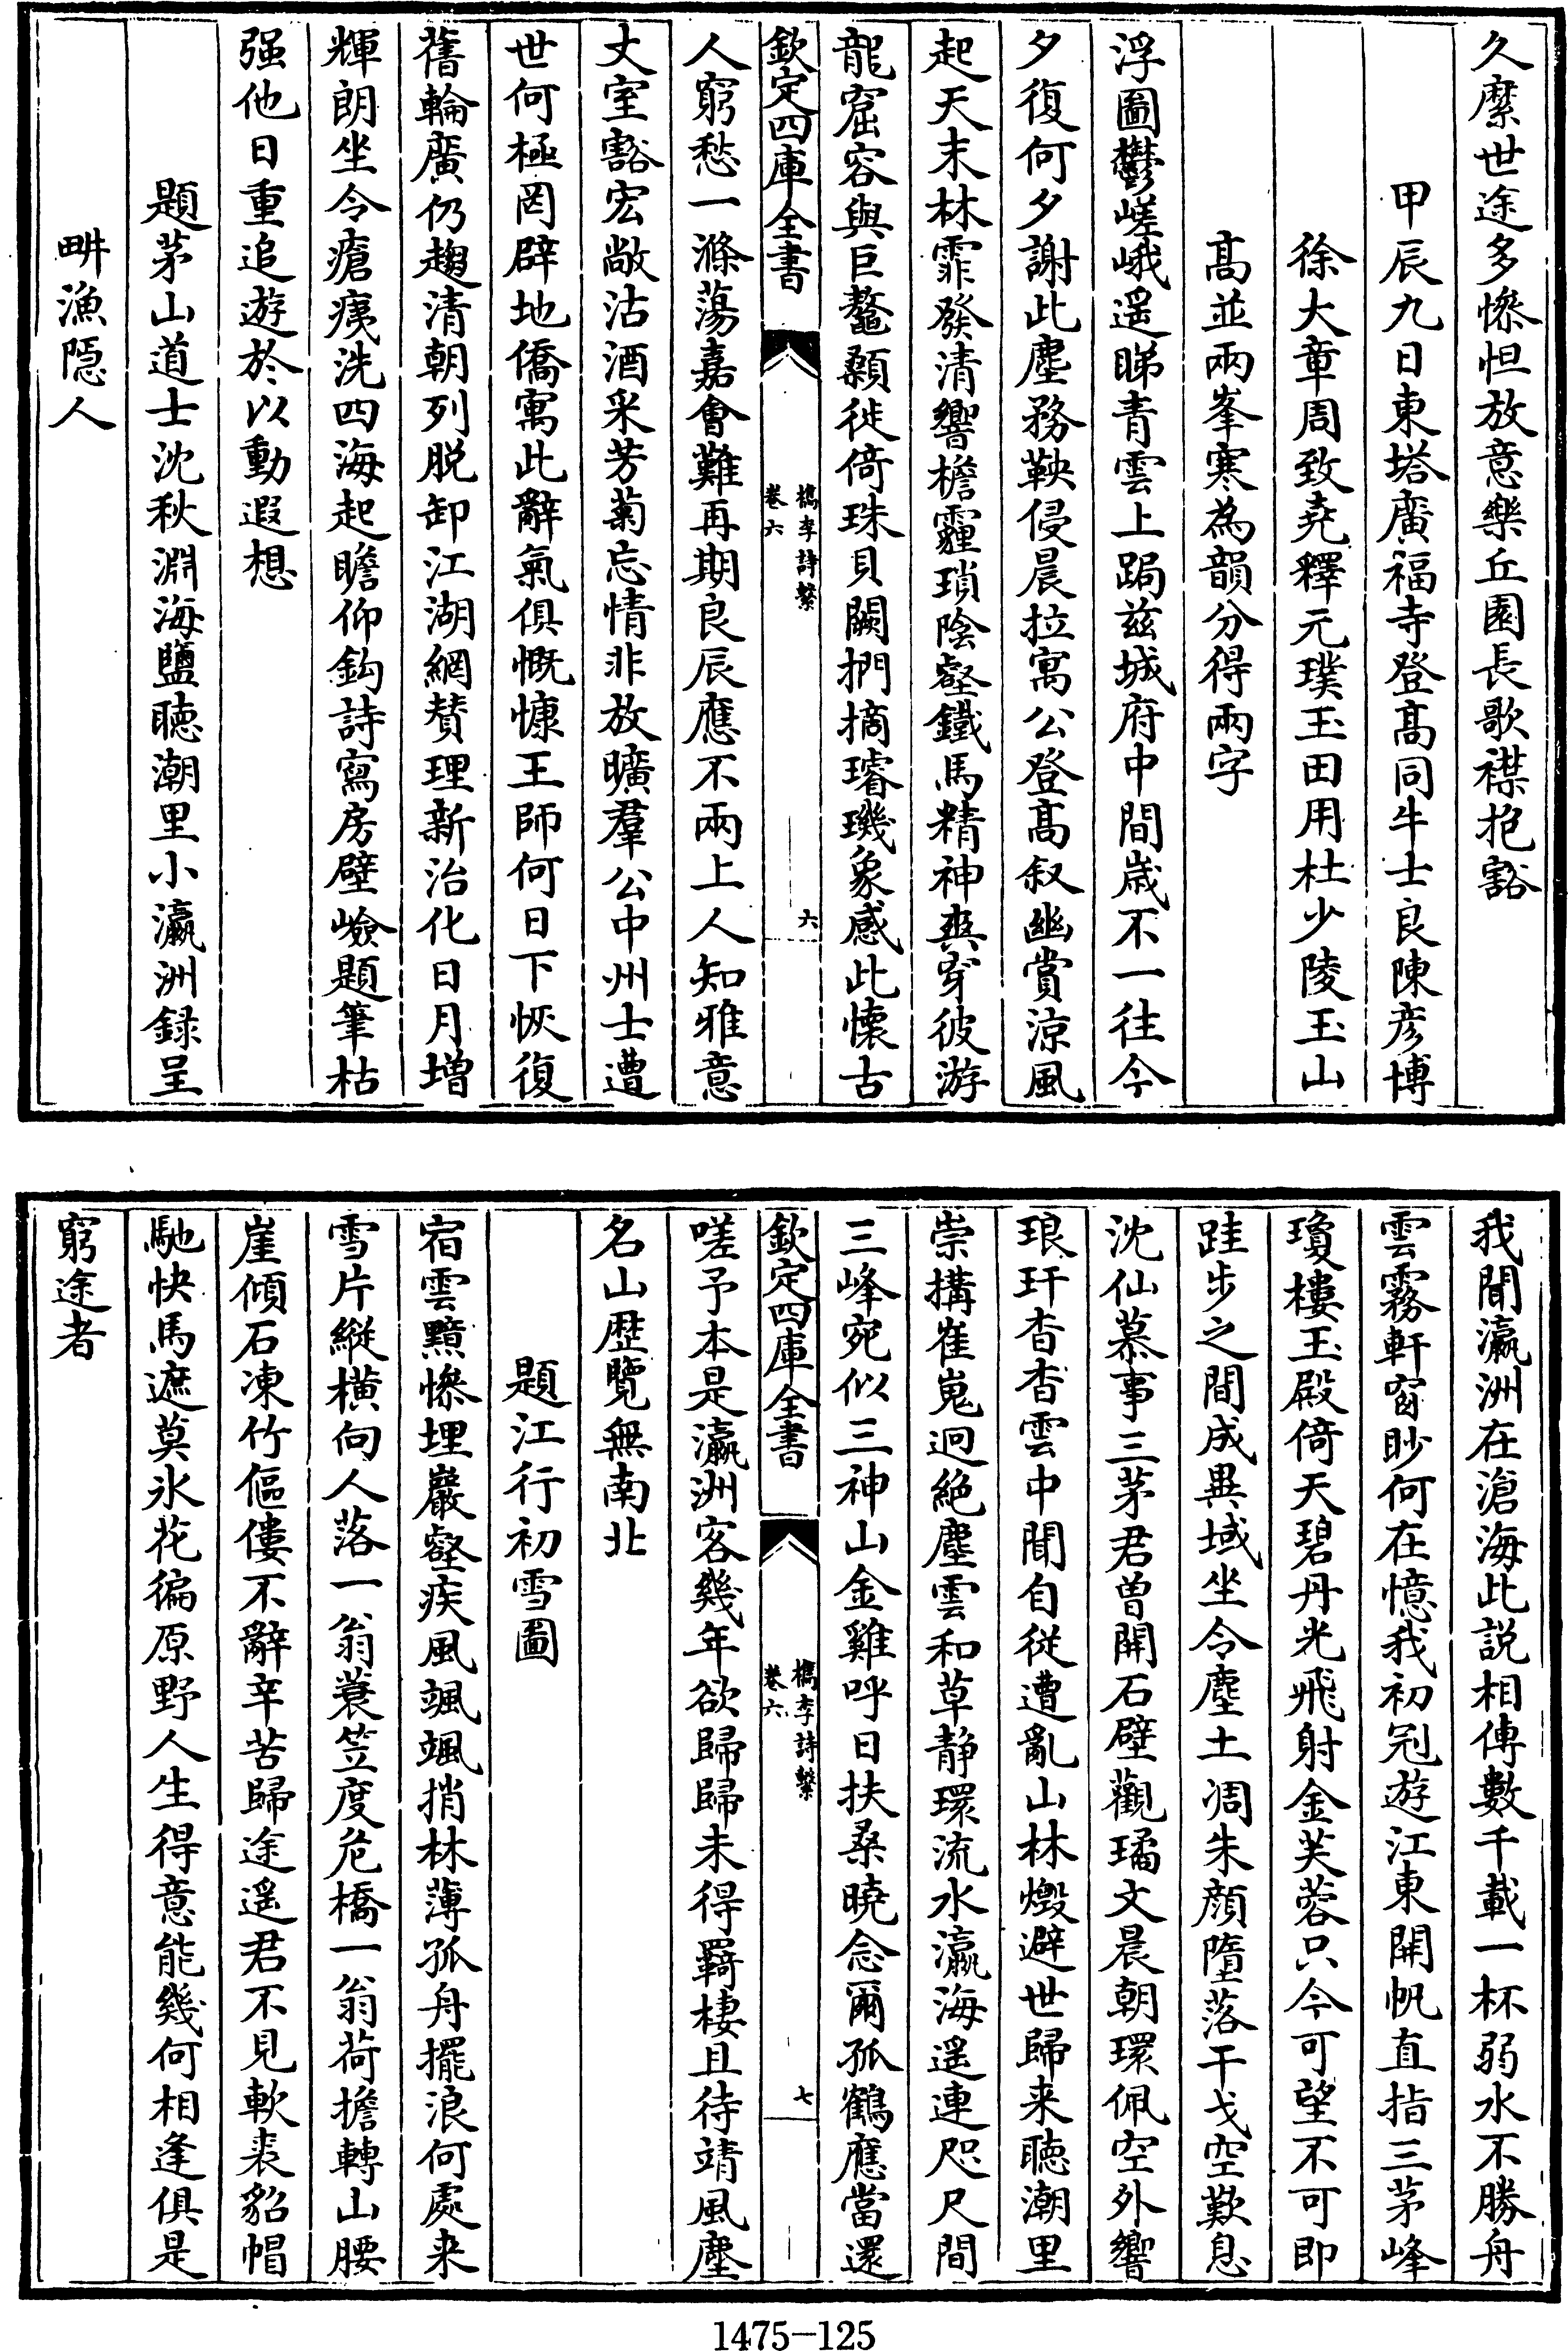 久縻世途多慘怛放意樂丘園長歌襟抱豁
甲辰九日東塔廣福寺登髙同牛士良陳彦博
徐大章周致堯釋元璞玉田用杜少陵玉山
髙並兩峯寒為韻分得兩字
浮圖鬱嵯峨遥睇青雲上跼兹城府中間歲不一往今
夕復何夕謝此塵務鞅侵晨拉寓公登髙叙幽賞涼風
起天末林霏發清響檐霾瑣陰壑鐵馬精神爽穿彼游
龍窟容與巨鼇顙徙倚珠貝闕捫摘璿璣象感此懷古
欽定四庫全書
檇李詩繫
卷六
六
人窮愁一滌蕩嘉會難再期良辰應不兩上人知雅意
丈室豁宏敞沽酒采芳菊忘情非放曠羣公中州士遭
世何極罔辟地僑寓此辭氣俱慨慷王師何日下恢復
舊輪廣仍趨清朝列脱卸江湖網賛理新治化日月增
輝朗坐令瘡痍洗四海起瞻仰鈎詩寫房壁嶮題筆枯
强他日重追遊於以動遐想
題茅山道士沈秋淵海鹽聴潮里小瀛洲録呈
畊漁隠人
我聞瀛洲在滄海此説相傳數千載一杯弱水不勝舟
雲霧軒窗眇何在憶我初冠遊江東開帆直指三茅峰
瓊樓玉殿倚天碧丹光飛射金芙蓉只今可望不可即
跬步之間成異域坐令塵土凋朱顔墮落干戈空歎息
沈仙慕事三茅君曽開石壁觀璚文晨朝環佩空外響
琅玕杳杳雲中聞自從遭亂山林燬避世歸来聴潮里
崇搆崔嵬迥絶塵雲和草静環流水瀛海遥連咫尺間
三峰宛似三神山金雞呼日扶桑曉念爾孤鶴應當還
欽定四庫全書
檇李詩繫
卷六
七
嗟予本是瀛洲客幾年欲歸歸未得羇棲且待靖風塵
名山歴覽無南北
題江行初雪圖
宿雲黯慘埋巖壑疾風颯颯捎林薄孤舟擺浪何處来
雪片縱横向人落一翁蓑笠度危橋一翁荷擔轉山腰
崖傾石凍竹傴僂不辭辛苦歸途遥君不見軟裘貂帽
馳快馬遮莫氷花徧原野人生得意能幾何相逢俱是
窮途者
1475-125